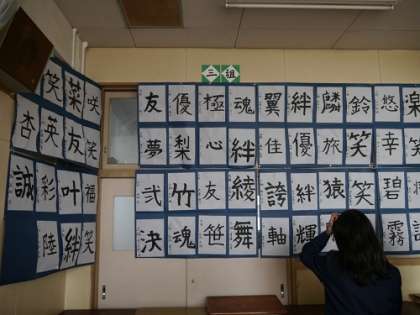 三組
笑 菜 咲
杏 英 友 笑
誠 彩 叶 福
陸 絆 笑
友 優 極 魂 翼 絆 麟 鈴 悠 楽
夢 梨 心 絆 佳 優 旅 笑 幸 笑
弐 竹 友 綾 誇 絆 猿 笑 碧
決 魂 笹 舞 軸 輝 霧